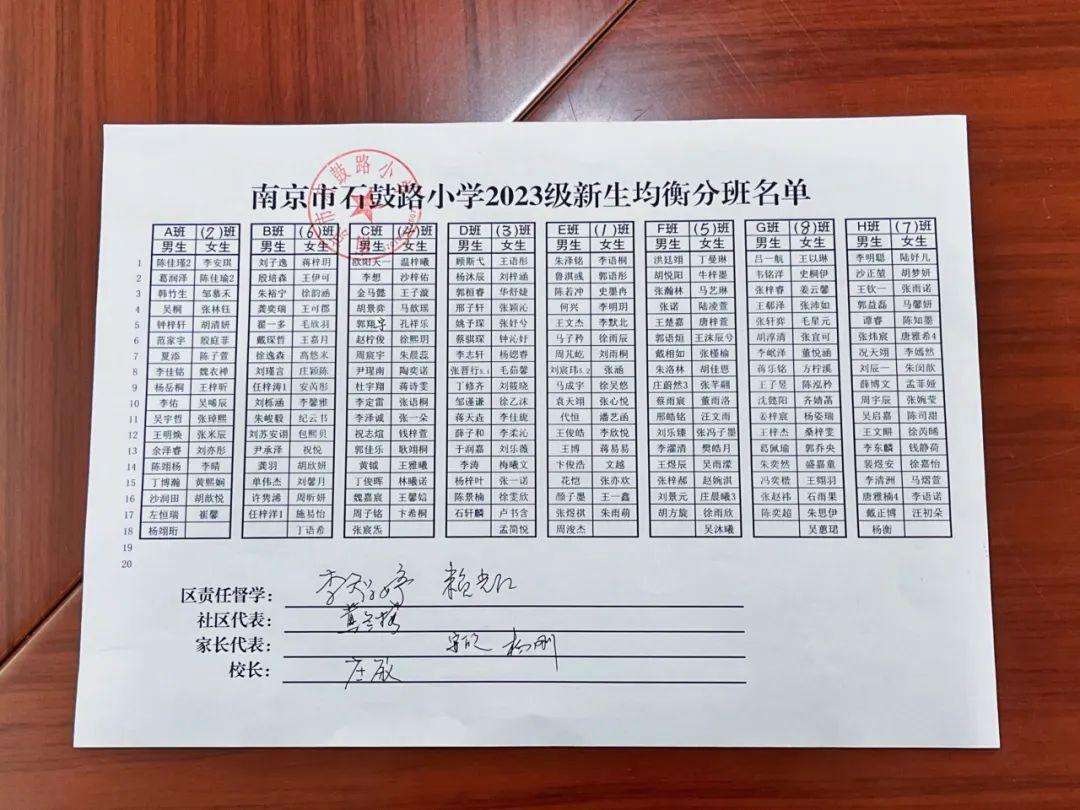 南京市石鼓路小学2023级新生均衡分班名单
A班 (2)班 B班 (6)班 C班 (4)班 D班 (3)班 E班 (1)班 F班 (5)班 G班 (8)班 H班 (7)班
男生 女生 男生 女生 男生 女生 男生 女生 男生 女生 男生 女生 男生 女生 男生 女生
1 陈佳瑶2 李安琪 刘子逸 蒋梓玥 欧阳天一 温梓曦 顾斯弋 王语彤 朱泽铭 李语桐 洪廷翊 丁曼琳 吕一航 王以琳 李明聪 陆妤儿
2 葛润泽 陈佳瑜2 殷培森 王伊可 李想 沙梓佑 杨沐辰 刘梓涵 鲁淇彧 郭语彤 胡悦阳 牛梓墨 韦铭洋 史桐伊 沙正堃 胡梦妍
3 韩竹生 邹慕禾 朱裕宁 徐韵涵 金马懿 王子漩 郭桓睿 华舒婕 陈若冲 史墨冉 张瀚林 马艺琳 张梓睿 姜云馨 王钦一 张雨诺
4 吴桐 张林钰 龚奕瑞 王可郡 胡景弈 马歆瑶 邢子轩 张颖沁 何兴 李明玥 张诺 陆凌萱 王郗泽 张沛如 郭益磊 马馨妍
5 钟梓轩 胡清妍 翟一多 毛欣羽 郭翔宇 孔祥乐 姚予琛 张妤兮 王文杰 李默北 王楚嘉 唐梓萱 张轩弈 毛星元 谭睿 陈知墨
6 范家宇 殷庭菲 戴琛哲 王嘉月 赵柠俊 徐熙玥 蔡骐琛 钟沁妤 马子矜 徐雨辰 郭语烜 王沫辰兮 胡淳清 张宜可 张炜宸 唐雅希4
7 夏添 陈子萱 徐逸森 高悠米 周宸宇 朱晨蕊 李志轩 杨勰睿 周芃屹 刘雨桐 戴相如 张槿榆 李岷泽 董悦涵 况天翊 李嫣然
8 李佳铭 魏衣禅 刘瑾言 庄颖陈 尹瑆南 陶奕诺 张晋行5.1 毛茹馨 刘宸玮5.2 张涵 朱洛林 胡佳恩 蒋乐铭 方柠溪 刘辰一 朱闵歆
9 杨岳桐 王梓昕 任梓涛1 安芮彤 杜宇翔 蒋诗雯 丁修齐 刘筱晓 马成宇 徐吴悠 庄蔚然3 张芊翩 王子昱 陈泓矜 薛博文 孟菲娅
10 李佑 吴晞辰 刘栎涵 李馨雅 李定雷 张语桐 邹谨谦 徐乙沫 袁天翊 张心悦 蔡雨宸 董雨洛 沈懿阳 齐婧菡 周宇辰 张婉莹
11 吴宇哲 张璋熙 朱峻毅 纪云书 李泽诚 张一朵 蒋天垚 李佳旎 代恒 潘艺函 邢皓铭 汪文雨 姜梓宸 杨姿瑞 吴启嘉 陈司甜
12 王明焕 张米辰 刘苏安诩 包熙贝 祝志煊 钱梓萱 薛子和 李柔沁 王俊皓 李欣悦 刘乐臻 张冯子墨 王梓杰 桑梓雯 王文畊 徐芮晞
13 余泽睿 刘亦彤 尹承泽 祝悦 郭佳乐 耿翊桐 于润嘉 刘乐薇 王博 蒋易易 李濯清 樊皓月 葛佩瑜 郭乔央 李东麟 钱静荷
14 陈翊杨 李晴 龚羽 胡欣妍 黄钺 王雅曦 李涛 梅曦文 卞俊浩 文越 王煜辰 吴雨濛 朱奕然 盛嘉童 裴煜安 徐嘉怡
15 丁博瀚 黄熙娴 单伟杰 刘馨月 丁俊晖 林曦诺 杨梓叶 张一诺 花恺 张亦欢 张梓郝 赵婉淇 冯奕楷 王翱羽 李清洲 马熠萱
16 沙润田 胡歆悦 许隽溪 周昕妍 魏嘉宸 王馨娮 陈景楠 徐雯欣 颜子墨 王一鑫 刘景元 庄晨曦3 张赵祎 石雨果 唐雅楠4 李语诺
17 左恒瑞 崔馨 任梓洋1 施易怡 周子铭 卞希桐 石轩麟 卢书含 张煜祺 朱雨萌 胡方旋 徐雨欣 陈奕超 朱思伊 戴正博 汪初朵
18 杨翊珩 丁语希 张宸炁 孟简悦 周浚杰 吴沐曦 吴蕙珺 杨衡
19
20
区责任督学：
社区代表：
家长代表： 杨刚
校长： 庄敏